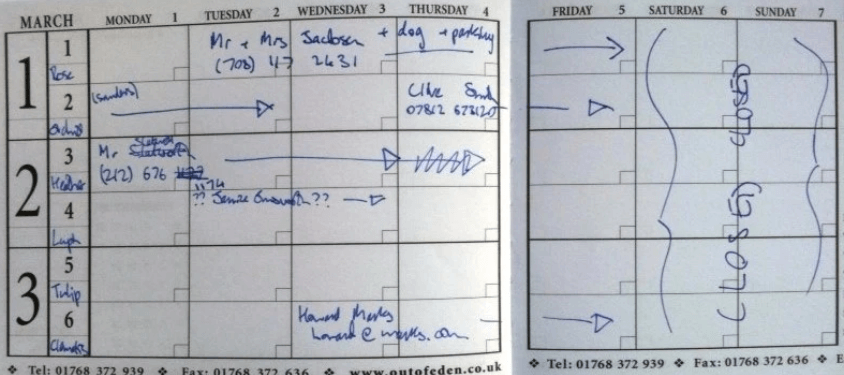 MARCH MONDAY 1 TUESDAY 2 WEDNESDAY 3 THURSDAY 4 FRIDAY 5 SATURDAY 6 SUNDAY 7
1
1
Rose
Mr + Mrs + dog + parking
(708) 47 2431
2
(Sanders)
Clive Smith
07812 678120
CLOSED
2
3
Heather
Mr
(212) 676
1174
4
?? ??
CLOSED
3
5
Tulip
6
Howard Marks
howard@marks.com
❖ Tel: 01768 372 939 ❖ Fax: 01768 372 636 ❖ www.outofeden.co.uk
❖ Tel: 01768 372 939 ❖ Fax: 01768 372 636 ❖ E